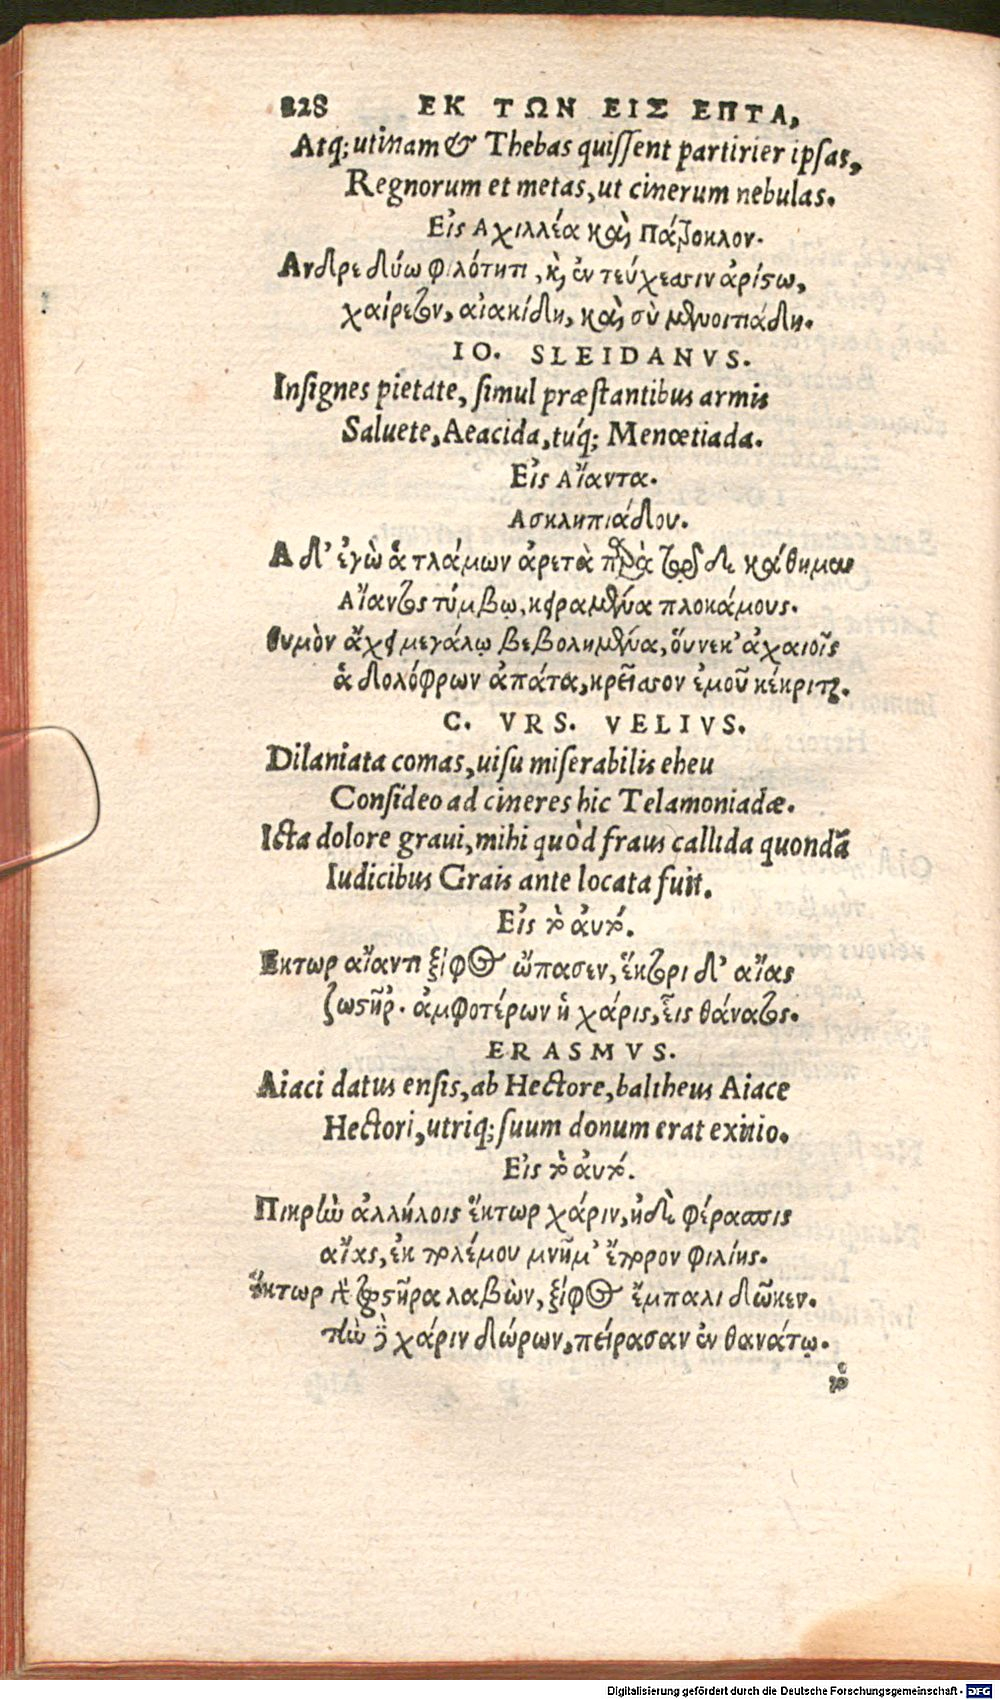 228 ΕΚ ΤΩΝ ΕΙΣ ΕΠΤΑ,
Atq; utinam & Thebas quissent partirier ipsas,
Regnorum et metas, ut cinerum nebulas.
Εἰς Αχιλλέα καὶ Πάτροκλον.
Ανδρε δύω φιλότητι, κὶ ἐν τεύχεσιν ἀρίστω,
χαίρετον, αἰακίδη, καὶ σὺ μενοιτιάδη.
IO. SLEIDANVS.
Insignes pietate, simul præstantibus armis
Saluete, Aeacida, tuq́; Menœtiada.
Εἰς Αἴαντα.
Ασκληπιάδου.
Α δ' ἐγὼ ἁ τλάμων ἀρετὰ παρὰ τῷδε κάθημαι
Αἴαντος τύμβῳ, κειραμένα πλοκάμους.
θυμὸν ἄχει μεγάλῳ βεβολημένα, οὕνεκ' ἀχαιοῖς
ἁ δολόφρων ἀπάτα, κρεῖσσον ἐμοῦ κέκριται.
C. VRS. VELIVS.
Dilaniata comas, uisu miserabilis eheu
Consideo ad cineres hic Telamoniadæ.
Icta dolore graui, mihi quòd fraus callida quondã
Iudicibus Grais ante locata fuit.
Εἰς τὸ αὐτό.
Εκτωρ αἴαντι ξίφος ὤπασεν, ἕκτορι δ' αἴας
ζωστῆρ. ἀμφοτέρων ἡ χάρις, εἷς θάνατος.
ERASMVS.
Aiaci datus ensis, ab Hectore, baltheus Aiace
Hectori, utriq; suum donum erat exitio.
Εἰς τὸ αὐτό.
Πικρὴν ἀλλήλοις ἕκτωρ χάριν, ἠδὲ φέρασπις
αἴας, ἐκ πολέμου μνῆμ' ἔπορον φιλίης.
ἕκτωρ γὰρ ζωστῆρα λαβὼν, ξίφος ἔμπαλι δῶκεν.
τὴν δὲ χάριν δώρων, πείρασαν ἐν θανάτῳ.
τὸ
Digitalisierung gefördert durch die Deutsche Forschungsgemeinschaft - DFG